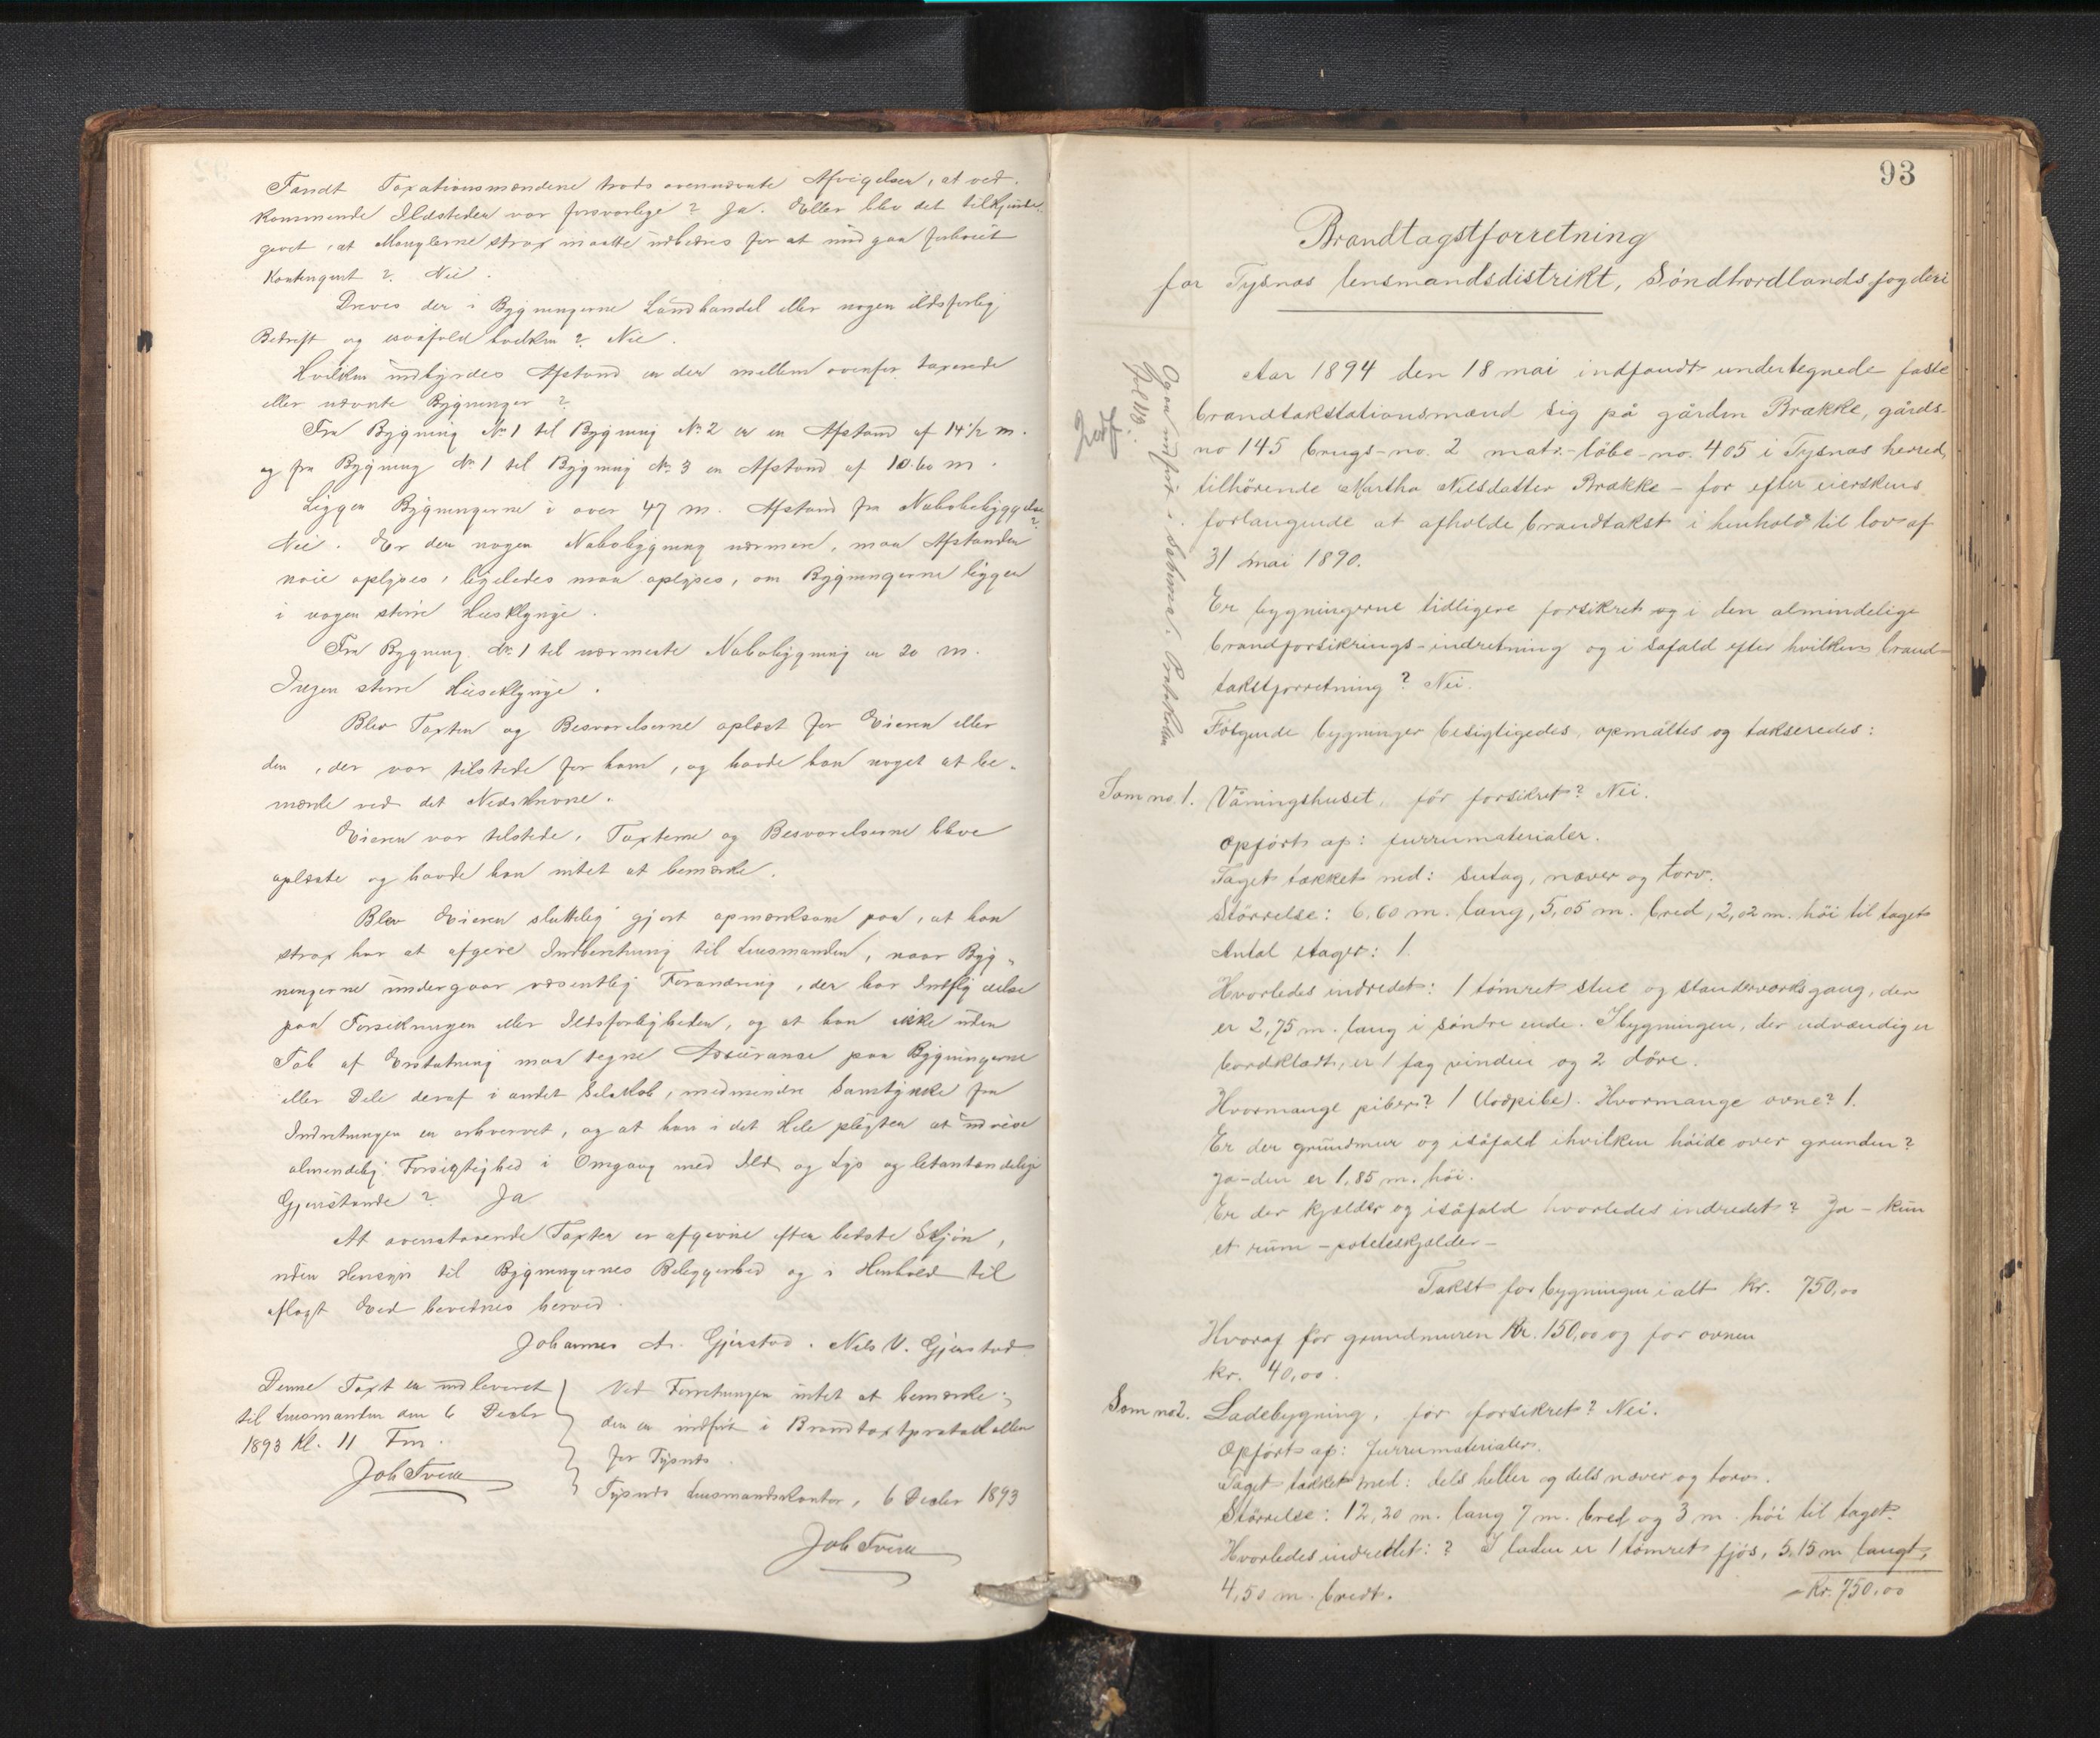 Fandt Taxationsmændene trods ovennævnte Afvigelser, at ved-
kommende Ildsteder var forsvarlige? Ja. Eller blev det tilkjende-
givet, at Manglerne strax maatte udbedres for at undgaa forhøiet
Kontingent? Nei.
Dreves der i Bygningerne Landhandel eller nogen ildsfarlig
Bedrift og isaafald hvilken? Nei.
Hvilken indbyrdes Afstand er der mellem ovenfor taxerede
eller nævnte Bygninger?
Fra Bygning No 1 til Bygning No 2 er en Afstand af 14½ m.
og fra Bygning No 1 til Bygning No 3 en Afstand af 10.60 m.
Ligger Bygningerne i over 47 m. Afstand fra Nabobebyggelse?
Nei. Er der nogen Nabobygning nærmere, maa Afstanden
nøie oplyses, ligeledes maa oplyses, om Bygningerne ligger
i nogen større Husklynge.
Fra Bygning No 1 til nærmeste Nabobygning er 20 m.
Ingen større Husklynge.
Blev Taxten og Besvarelserne oplæst for Eieren eller
den, der var tilstede for ham, og havde han noget at be-
mærke ved det Nedskrevne.
Eieren var tilstede, Taxterne og Besvarelserne bleve
oplæste og havde han intet at bemærke.
Blev Eieren sluttelig gjort opmærksom paa, at han
strax har at afgive Indberetning til Lensmanden, naar Byg-
ningerne undergaar væsentlig Forandring, der har Indflydelse
paa Forsikringen eller Ildsfarligheden, og at han ikke uden
Tab af Erstatning maa tegne Assurance paa Bygningerne
eller Dele deraf i andet Selskab, medmindre Samtykke fra
Indretningen er erhvervet, og at han i det Hele pligter at udvise
almindelig Forsigtighed i Omgang med Ild og Lys og letantændelige
Gjenstande? Ja
At ovenstaaende Taxter er afgivne efter bedste Skjøn,
uden Hensyn til Bygningernes Beliggenhed og i Henhold til
aflagt Eed bevidnes herved.
Johannes A. Gjerstad. Nils V. Gjerstad
Denne Taxt er indleveret
til Lensmanden den 6 Decbr
1893 Kl. 11 Fm.
Joh Tveit
Ved Forretningen intet at bemærke;
den er indført i Brandtaxtprotokollen
for Tysnes
Tysnes Lensmandskontor, 6 Decbr 1893
Joh Tveit
93
Brandtagstforretning
for Tysnæs lensmandsdistrikt, Søndhordlands fogderi
Aar 1894 den 18 mai indfandt undertegnede faste
brandtakstationsmænd sig på gården Brække, gårds-
no 145 brugs-no. 2 matr.-løbe-no. 405 i Tysnæs herred,
tilhørende Martha Nilsdatter Brække – for efter eierskens
forlangende at afholde brandtakst i henhold til lov af
31 mai 1890.
Er bygningerne tidligere forsikret og i den almindelige
brandforsikrings-indretning og i såfald efter hvilken brand-
takstforretning? Nei.
Følgende bygninger besigtigedes, opmåltes og takseredes:
Som no 1. Våningshuset, før forsikret? Nei.
Opført af: furrumaterialer.
Taget tækket med: sutag, næver og torv.
Størrelse: 6,60 m. lang, 5,05 m. bred, 2,02 m. høi til taget
Antal etager: 1.
Hvorledes indredet: 1 tømret stue og standerværksgang, der
er 2,75 m. lang i søndre ende. I bygningen, der udvændig er
bordklædt, er 1 fag vindu og 2 døre.
Hvormange piber? 1 (lodpibe). Hvormange ovne? 1.
Er der grundmur og isåfald ihvilken høide over grunden?
Ja – den er 1,85 m. høi.
Er der kjælder og isåfald hvorledes indredet? Ja – kun
et rum – poteteskjælder –
Takst for bygningen i alt Kr. 750,00
Hvoraf for grundmuren Kr. 150,00 og for ovnen
kr. 40,00.
Som no 2. Ladebygning, før forsikret? Nei.
Opført af: furrumaterialer.
Taget tækket med: dels heller og dels næver og torv.
Størrelse: 12,20 m. lang 7 m. bred og 3 m. høi til taget.
Hvorledes indredet:? I laden er 1 tømret fjøs, 5,15 m langt,
4,50 m. bredt.
– Kr. 750,00
Ogsaa indført i Protokollen
fol 119.